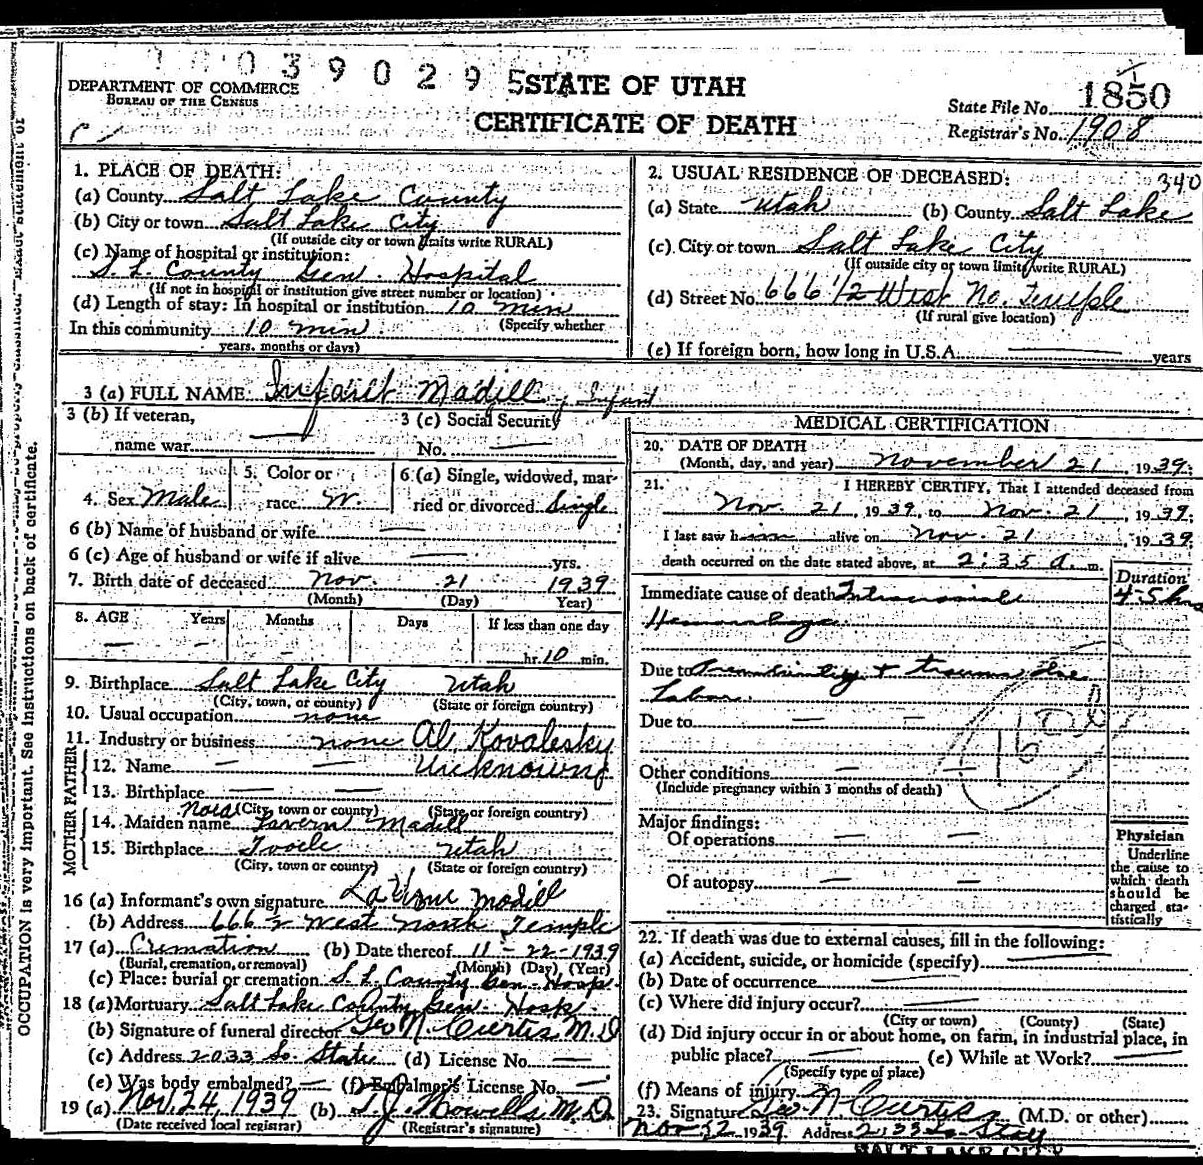 0 0 3 9 0 2 9 5
STATE OF UTAH
CERTIFICATE OF DEATH
DEPARTMENT OF COMMERCE
BUREAU OF THE CENSUS
State File No. 1850
Registrar's No. 1908
1. PLACE OF DEATH:
(a) County Salt Lake County
(b) City or town Salt Lake City
(If outside city or town limits write RURAL)
(c) Name of hospital or institution:
S. L. County Gen. Hospital
(If not in hospital or institution give street number or location)
(d) Length of stay: In hospital or institution 10 min
(Specify whether
In this community 10 min
years, months or days)
2. USUAL RESIDENCE OF DECEASED: 340
(a) State Utah (b) County Salt Lake
(c) City or town Salt Lake City
(If outside city or town limits write RURAL)
(d) Street No. 666 1/2 West No. Temple
(If rural give location)
(e) If foreign born, how long in U.S.A. years
3 (a) FULL NAME: Infant Madill, Infant
3 (b) If veteran,
name war
3 (c) Social Security
No.
4. Sex Male
5. Color or
race W.
6 (a) Single, widowed, mar-
ried or divorced Single
6 (b) Name of husband or wife
6 (c) Age of husband or wife if alive yrs.
7. Birth date of deceased Nov. 21 1939
(Month) (Day) Year)
8. AGE Years Months Days If less than one day
hr. 10 min.
9. Birthplace Salt Lake City Utah
(City, town, or county) (State or foreign country)
10. Usual occupation none
11. Industry or business none
FATHER
12. Name Al Kovalesky
13. Birthplace Unknown
(City, town or county) (State or foreign country)
MOTHER
14. Maiden name Madill
15. Birthplace Tooele Utah
(City, town or county) (State or foreign country)
16 (a) Informant's own signature Madill
(b) Address 666 1/2 West North Temple
17 (a) Cremation (b) Date thereof 11-22-1939
(Burial, cremation, or removal) (Month) (Day) (Year)
(c) Place: burial or cremation S. L. County Gen. Hosp.
18 (a) Mortuary Salt Lake County Gen. Hosp.
(b) Signature of funeral director Geo N. Curtis M.D
(c) Address 2033 So. State (d) License No.
(e) Was body embalmed? (f) Embalmer's License No.
19 (a) Nov 24, 1939 (b) T. J. Howells M.D.
(Date received local registrar) (Registrar's signature)
MEDICAL CERTIFICATION
20. DATE OF DEATH
(Month, day, and year) November 21, 1939.
21. I HEREBY CERTIFY, That I attended deceased from
Nov. 21, 1939, to Nov. 21, 1939.
I last saw him alive on Nov. 21, 1939
death occurred on the date stated above, at 2:35 a. m.
Duration
Immediate cause of death Intracranial 4-5 hrs
Hemorrhage
Due to Prematurity & trauma
Labor
Due to
Other conditions
(Include pregnancy within 3 months of death)
Major findings:
Of operations
Of autopsy
Physician
Underline
the cause to
which death
should be
charged sta-
tistically
22. If death was due to external causes, fill in the following:
(a) Accident, suicide, or homicide (specify)
(b) Date of occurrence
(c) Where did injury occur?
(City or town) (County) (State)
(d) Did injury occur in or about home, on farm, in industrial place, in
public place? (e) While at Work?
(Specify type of place)
(f) Means of injury
23. Signature Geo N Curtis (M.D. or other)
Nov 22 1939. Address 2133 So. State
SALT LAKE CITY
OCCUPATION is very important. See instructions on back of certificate.